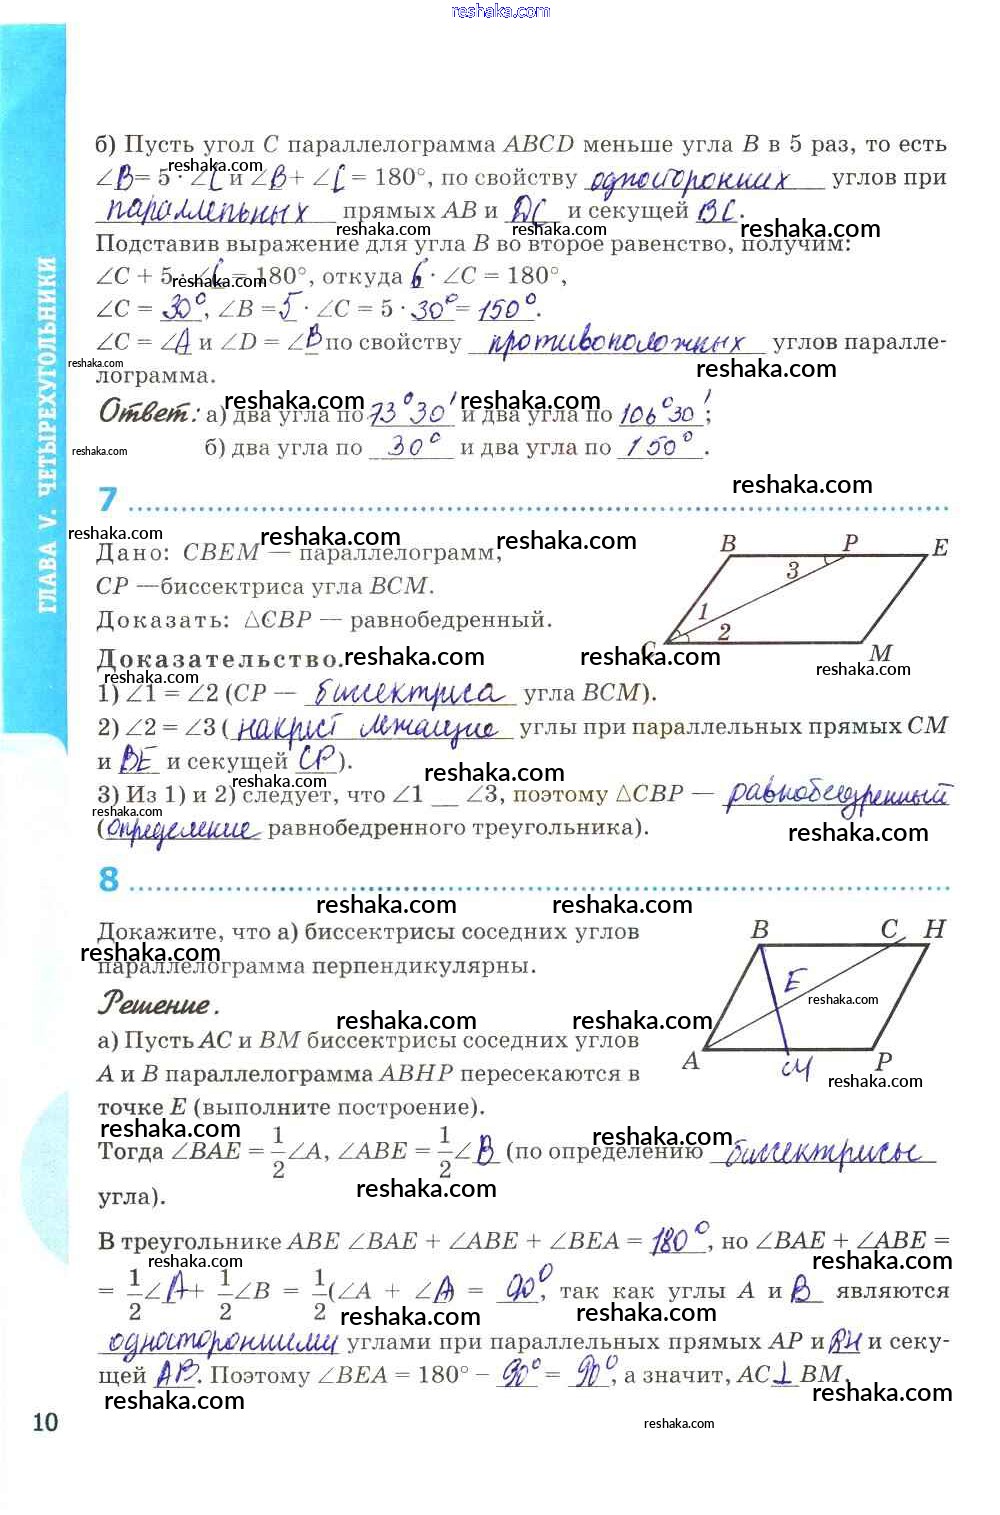 reshaka.com
б) Пусть угол C параллелограмма ABCD меньше угла B в 5 раз, то есть
∠B = 5 · ∠C и ∠B + ∠C = 180°, по свойству односторонних углов при
параллельных прямых AB и DC и секущей BC.
Подставив выражение для угла B во второе равенство, получим:
∠C + 5 · ∠C = 180°, откуда 6 · ∠C = 180°,
∠C = 30°, ∠B = 5 · ∠C = 5 · 30° = 150°.
∠C = ∠A и ∠D = ∠B по свойству противоположных углов паралле-
лограмма.
Ответ: а) два угла по 73°30′ и два угла по 106°30′;
б) два угла по 30° и два угла по 150°.
ГЛАВА V. ЧЕТЫРЕХУГОЛЬНИКИ
7
Дано: CBEM — параллелограмм,
CP —биссектриса угла BCM.
Доказать: △CBP — равнобедренный.
Доказательство.
1) ∠1 = ∠2 (CP — биссектриса угла BCM).
2) ∠2 = ∠3 (накрест лежащие углы при параллельных прямых CM
и BE и секущей CP).
3) Из 1) и 2) следует, что ∠1 __ ∠3, поэтому △CBP — равнобедренный
(определение равнобедренного треугольника).
B P E
3
1
2
C M
8
Докажите, что а) биссектрисы соседних углов
параллелограмма перпендикулярны.
Решение.
а) Пусть AC и BM биссектрисы соседних углов
A и B параллелограмма ABHP пересекаются в
точке E (выполните построение).
B C H
E
A M P
Тогда ∠BAE = 1/2 ∠A, ∠ABE = 1/2 ∠B (по определению биссектрисы
угла).
В треугольнике ABE ∠BAE + ∠ABE + ∠BEA = 180°, но ∠BAE + ∠ABE =
= 1/2 ∠A + 1/2 ∠B = 1/2 (∠A + ∠A) = 90°, так как углы A и B являются
односторонними углами при параллельных прямых AP и BH и секу-
щей AB. Поэтому ∠BEA = 180° − 90° = 90°, а значит, AC ⊥ BM.
10
reshaka.com